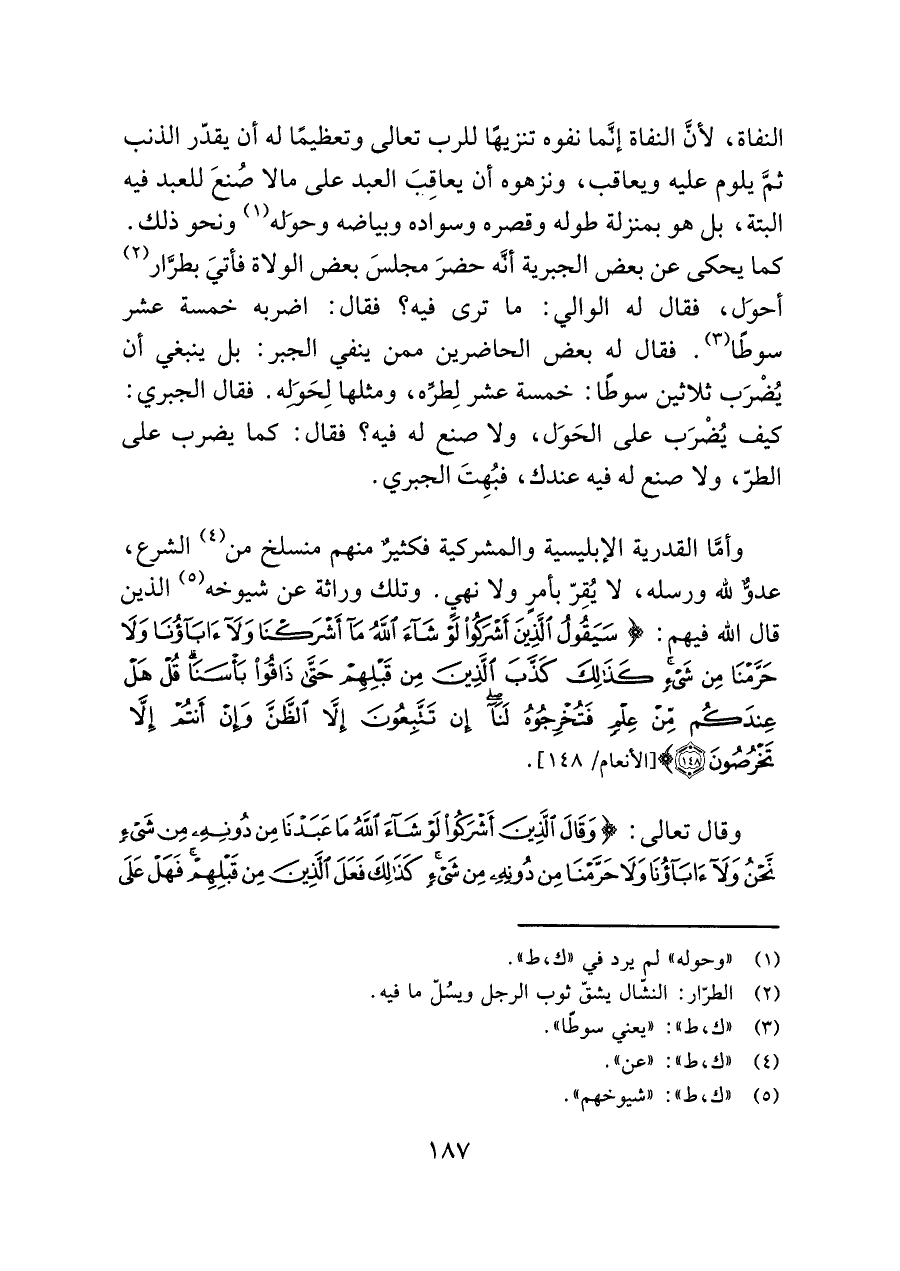 النفاة، لأنَّ النفاة إنَّما نفوه تنزيهًا للرب تعالى وتعظيمًا له أن يقدّر الذنب
ثمَّ يلوم عليه ويعاقب، ونزهوه أن يعاقِبَ العبد على مالا صُنعَ للعبد فيه
البتة، بل هو بمنزلة طوله وقصره وسواده وبياضه وحوَله(١) ونحو ذلك.
كما يحكى عن بعض الجبرية أنَّه حضرَ مجلسَ بعض الولاة فأتيَ بطرَّار(٢)
أحوَل، فقال له الوالي: ما ترى فيه؟ فقال: اضربه خمسة عشر
سوطًا(٣). فقال له بعض الحاضرين ممن ينفي الجبر: بل ينبغي أن
يُضْرَب ثلاثين سوطًا: خمسة عشر لِطرِّه، ومثلها لِحَوَلِه. فقال الجبري:
كيف يُضْرَب على الحَوَل، ولا صنع له فيه؟ فقال: كما يضرب على
الطرّ، ولا صنع له فيه عندك، فبُهِتَ الجبري.
وأمَّا القدرية الإبليسية والمشركية فكثيرٌ منهم منسلخ من(٤) الشرع،
عدوٌّ لله ورسله، لا يُقِرّ بأمرٍ ولا نهيٍ. وتلك وراثة عن شيوخه(٥) الذين
قال الله فيهم: ﴿ سَيَقُولُ ٱلَّذِينَ أَشْرَكُوا۟ لَوْ شَآءَ ٱللَّهُ مَآ أَشْرَكْنَا وَلَآ ءَابَآؤُنَا وَلَا
حَرَّمْنَا مِن شَىْءٍۚ كَذَٰلِكَ كَذَّبَ ٱلَّذِينَ مِن قَبْلِهِمْ حَتَّىٰ ذَاقُوا۟ بَأْسَنَاۗ قُلْ هَلْ
عِندَكُم مِّنْ عِلْمٍ فَتُخْرِجُوهُ لَنَآۖ إِن تَتَّبِعُونَ إِلَّا ٱلظَّنَّ وَإِنْ أَنتُمْ إِلَّا
تَخْرُصُونَ ١٤٨﴾ [الأنعام/ ١٤٨].
وقال تعالى: ﴿ وَقَالَ ٱلَّذِينَ أَشْرَكُوا۟ لَوْ شَآءَ ٱللَّهُ مَا عَبَدْنَا مِن دُونِهِۦ مِن شَىْءٍ
نَّحْنُ وَلَآ ءَابَآؤُنَا وَلَا حَرَّمْنَا مِن دُونِهِۦ مِن شَىْءٍۚ كَذَٰلِكَ فَعَلَ ٱلَّذِينَ مِن قَبْلِهِمْۚ فَهَلْ عَلَى
(١) «وحوله» لم يرد في «ك، ط».
(٢) الطرّار: النشّال يشقّ ثوب الرجل ويسُلّ ما فيه.
(٣) «ك، ط»: «يعني سوطًا».
(٤) «ك، ط»: «عن».
(٥) «ك، ط»: «شيوخهم».
١٨٧